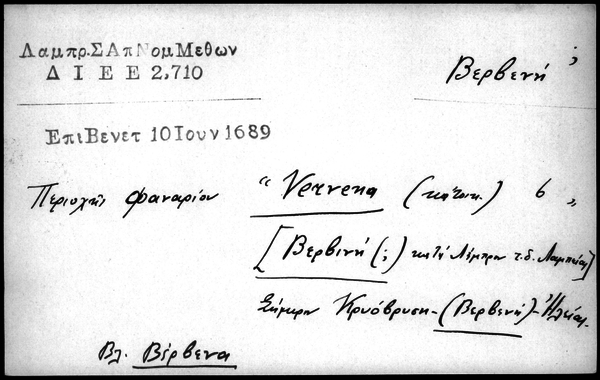 Λαμπρ.ΣΑπΝομΜεθων
Δ Ι Ε Ε 2,710
Βερβενή ;
ΕπιΒενετ 10Ιουν1689
Περιοχῆς Φαναρίου “Vervena (κάτοικ.) 6 „
[Βερβινή (;) κατὰ Λάμπρον τ.δ. Λαμπείας]
Σήμερον Κρυόβρυση-(Βερβενή)-Ἠλείας.
Βλ. Βέρβενα